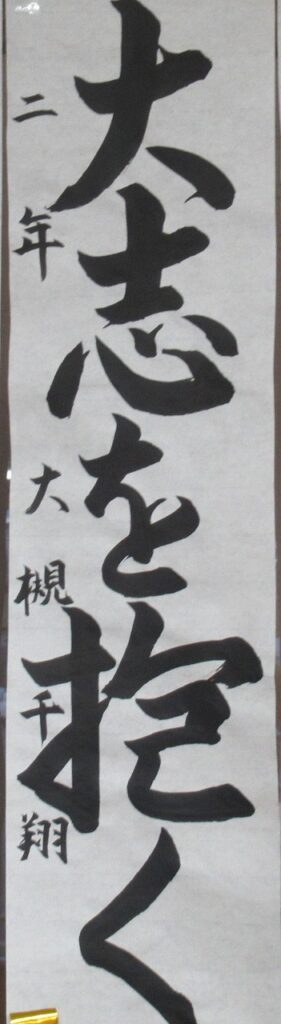 大志を抱く
二年 大槻千翔